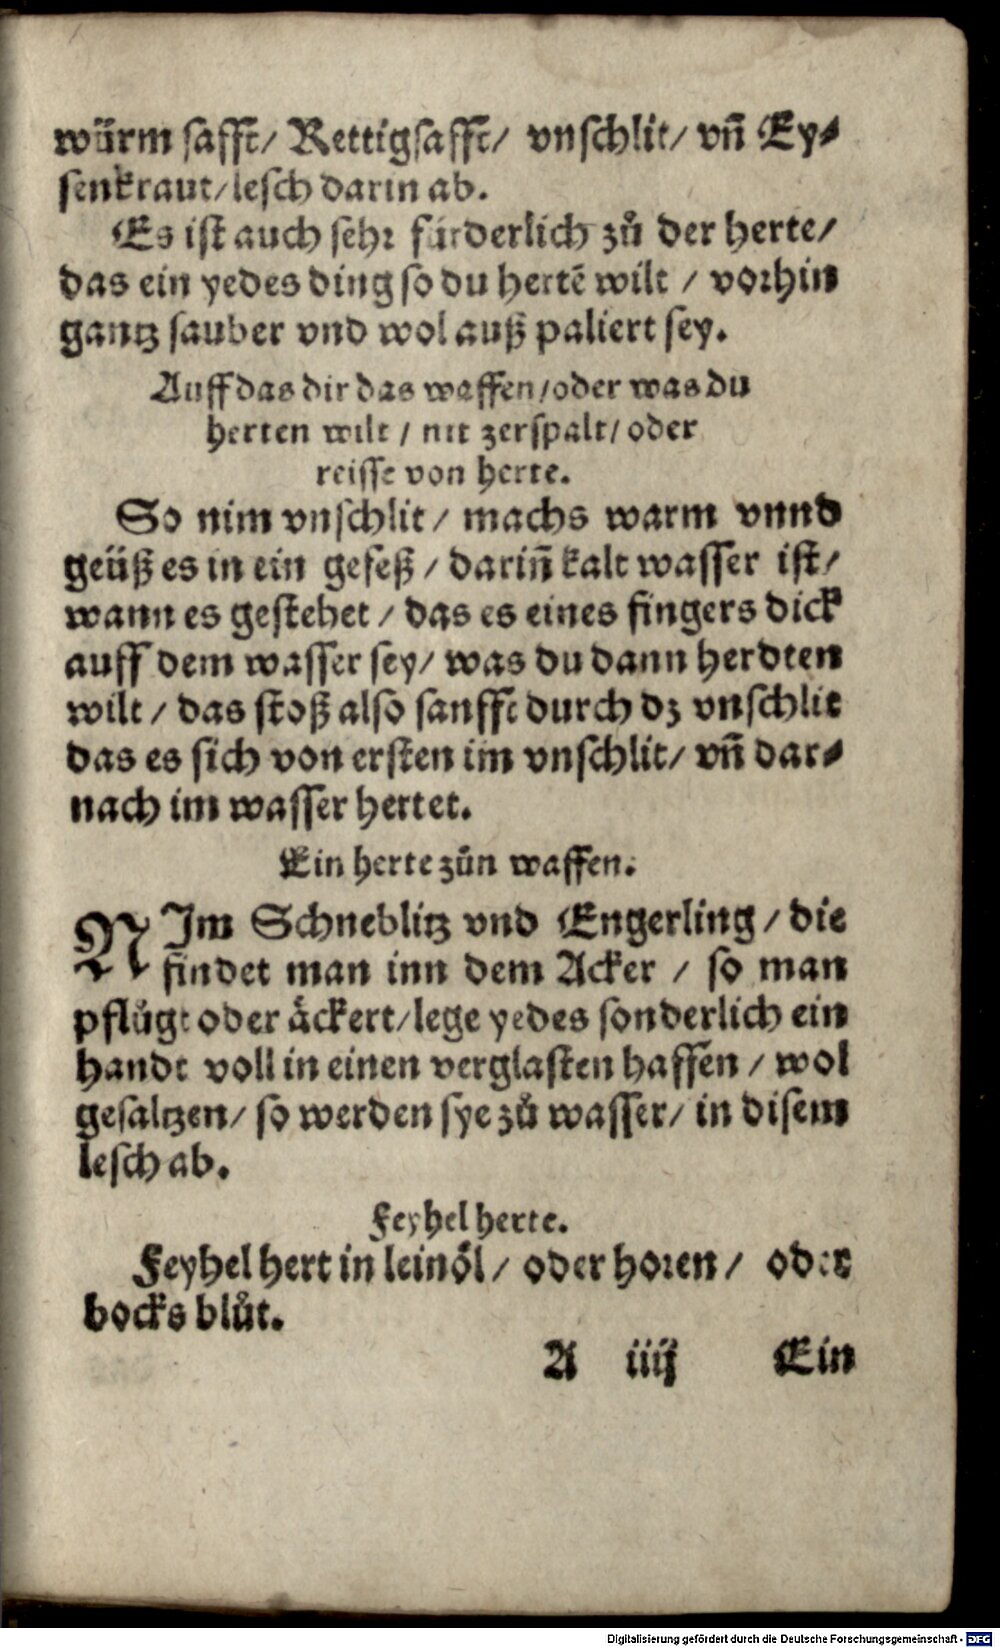 würm safft/ Rettigsafft/ vnschlit/ vñ Ey⸗
senkraut/ lesch darin ab.
Es ist auch sehr fürderlich zů der herte/
das ein yedes ding so du hertē wilt / vorhin
gantz sauber vnd wol außpaliert sey.
Auff das dir das waffen/ oder was du
herten wilt / nit zerspalt/ oder
reisse von herte.
So nim vnschlit / machs warm vnnd
geüß es in ein gefeß / dariñ kalt wasser ist/
wann es gestehet / das es eines fingers dick
auff dem wasser sey/ was du dann herdten
wilt / das stoß also sanfft durch dz vnschlit
das es sich von ersten im vnschlit/ vñ dar⸗
nach im wasser hertet.
Ein herte zůn waffen.
NIm Schneblitz vnd Engerling / die
findet man inn dem Acker / so man
pflůgt oder äckert/ lege yedes sonderlich ein
handt voll in einen verglasten haffen / wol
gesaltzen/ so werden sye zů wasser/ in disem
lesch ab.
Feyhel herte.
Feyhel hert in leinöl / oder horen / oder
bocks blůt.
A iiij Ein
Digitalisierung gefördert durch die Deutsche Forschungsgemeinschaft - DFG